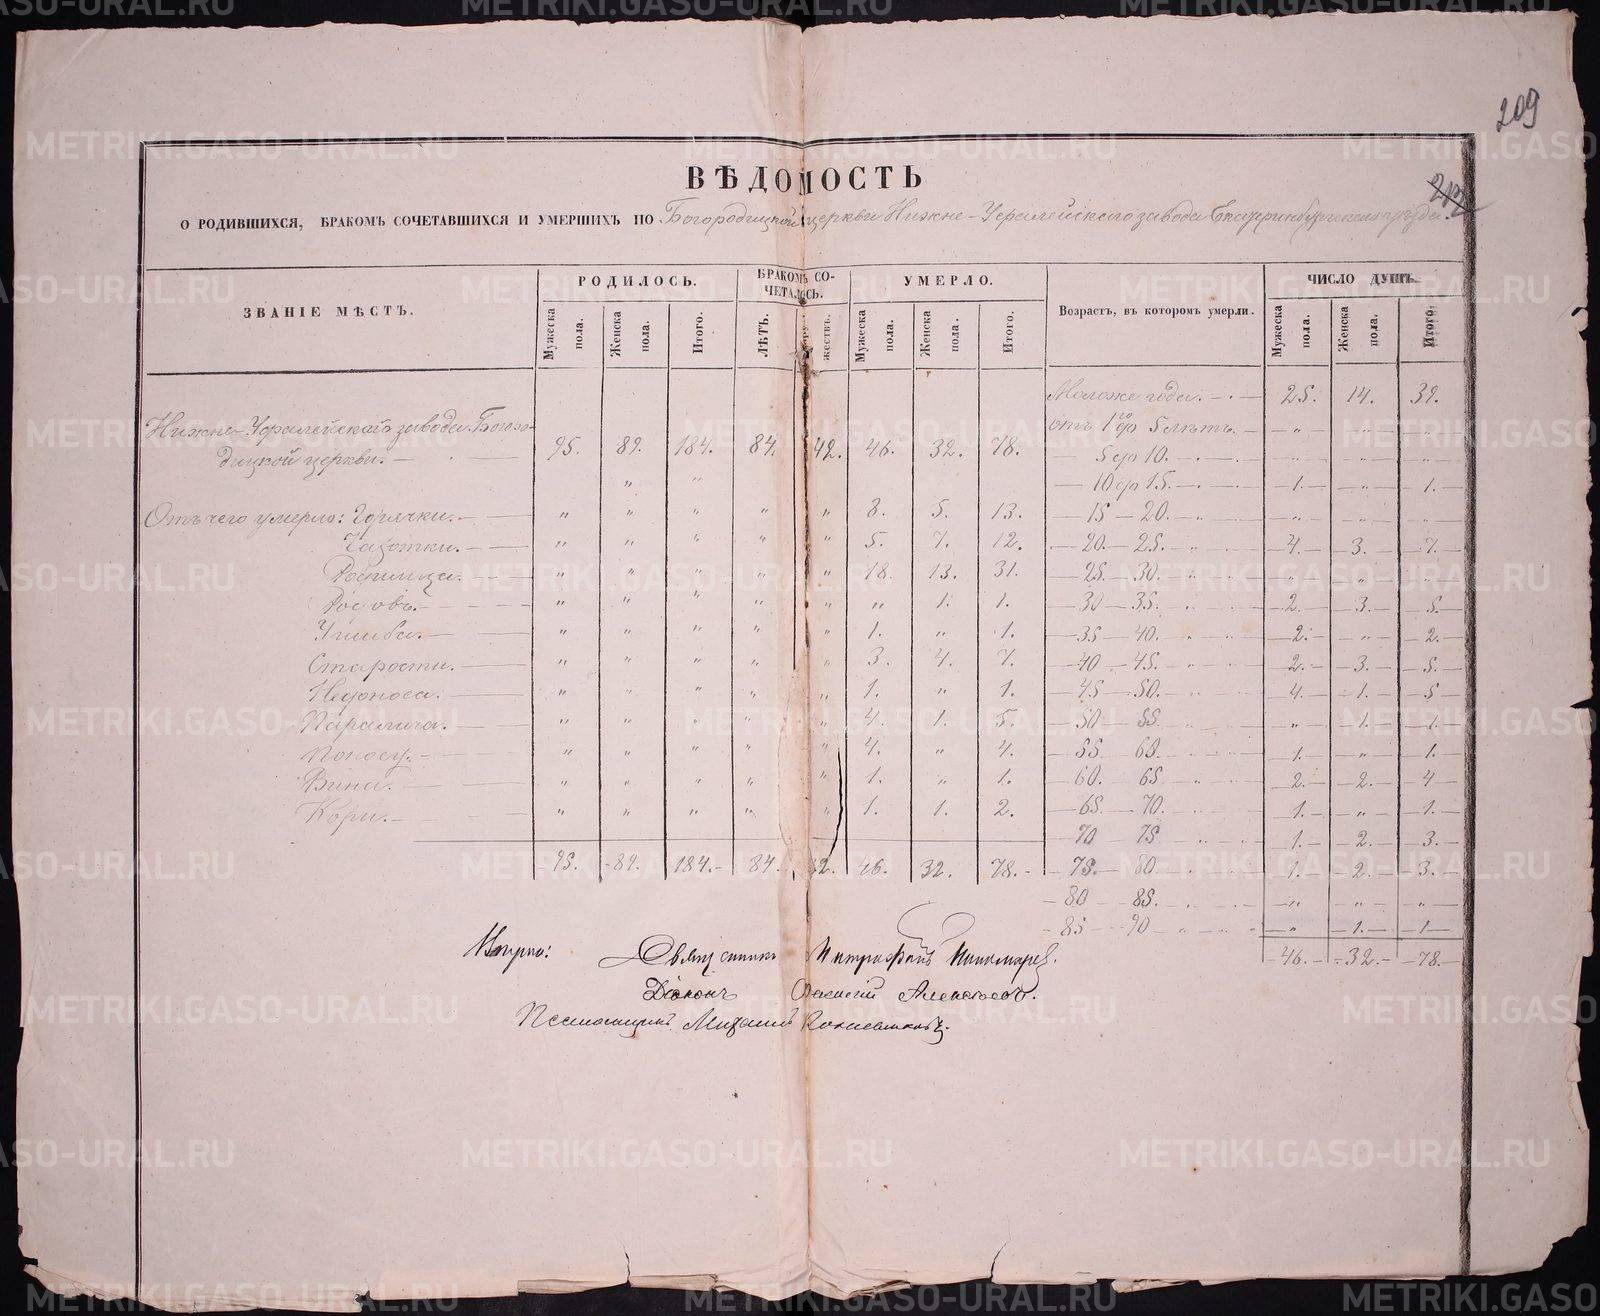 209
212
ВѢДОМОСТЬ
О РОДИВШИХСЯ, БРАКОМЪ СОЧЕТАВШИХСЯ И УМЕРШИХЪ ПО Богородицкой церкви Нижне-Уфалейскаго завода Екатеринбургскаго уѣзда.
ЗВАНІЕ МѢСТЪ. РОДИЛОСЬ. БРАКОМЪ СО-ЧЕТАЛОСЬ. УМЕРЛО. Возрастъ, въ которомъ умерли. ЧИСЛО ДУШЪ.
Мужеска пола. Женска пола. Итого. ЛѢТЪ. жествъ. Мужеска пола. Женска пола. Итого. Мужеска пола. Женска пола. Итого.
Моложе года. 25. 14. 39.
Нижне-Уфалейскаго завода Богоро-
отъ 1го до 5 лѣтъ. " " "
дицкой церкви. 95. 89. 184. 84. 42. 46. 32. 78.
5 до 10. " " "
" "
10 до 15. 1. " 1.
Отъ чего умерло: Горячки. " " " " " 8. 5. 13.
15 — 20. " " "
Чахотки. " " " " " 5. 7. 12.
20 — 25. 4. 3. 7.
" " " " " 18. 13. 31.
25 — 30. " " "
Родовъ. " " " " " " 1. 1.
30 — 35. 2. 3. 5.
Ушиба. " " " " " 1. " 1.
35 — 40. 2. " 2.
Старости. " " " " " 3. 4. 7.
40 — 45. 2. 3. 5.
Недоноса. " " " " " 1. " 1.
45 — 50. 4. 1. 5
Паралича. " " " " " 4. 1. 5.
50 — 55 " 1. 1.
Поносу. " " " " " 4. " 4.
55 60. 1. " 1.
Вина. " " " " " 1. " 1.
60. 65 2. 2. 4
Кори. " " " " " 1. 1. 2.
65. 70. 1. " 1.
70 75 1. 2. 3.
95. 89. 184. 84. 42. 46. 32. 78.
75. 80 1. 2. 3.
80 85. " " "
85 90 " 1. 1.
46. 32. 78.
Священникъ Митрофанъ Пономаревъ.
Діаконъ Василій Алексѣевъ.
Псаломщикъ Михаилъ
METRIKI.GASO-URAL.RU